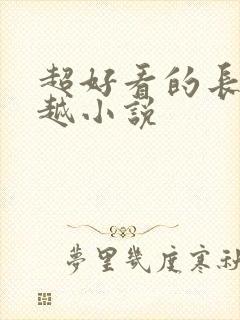 超好看的長
越小説
夢里幾度寒秋